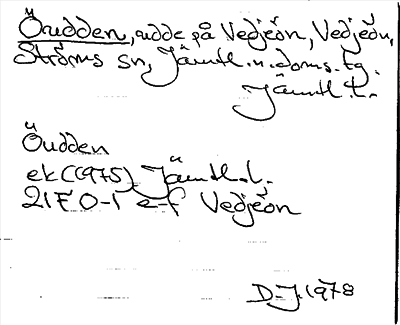 Öudden, udde på Vedjeön, Vedjeön,
Ströms sn, Jämtl. n. doms. tg.
Jämtl. l.
Öudden
ek (1975) Jämtl. l.
21F 0-1 e-f Vedjeön
D-J. 1978